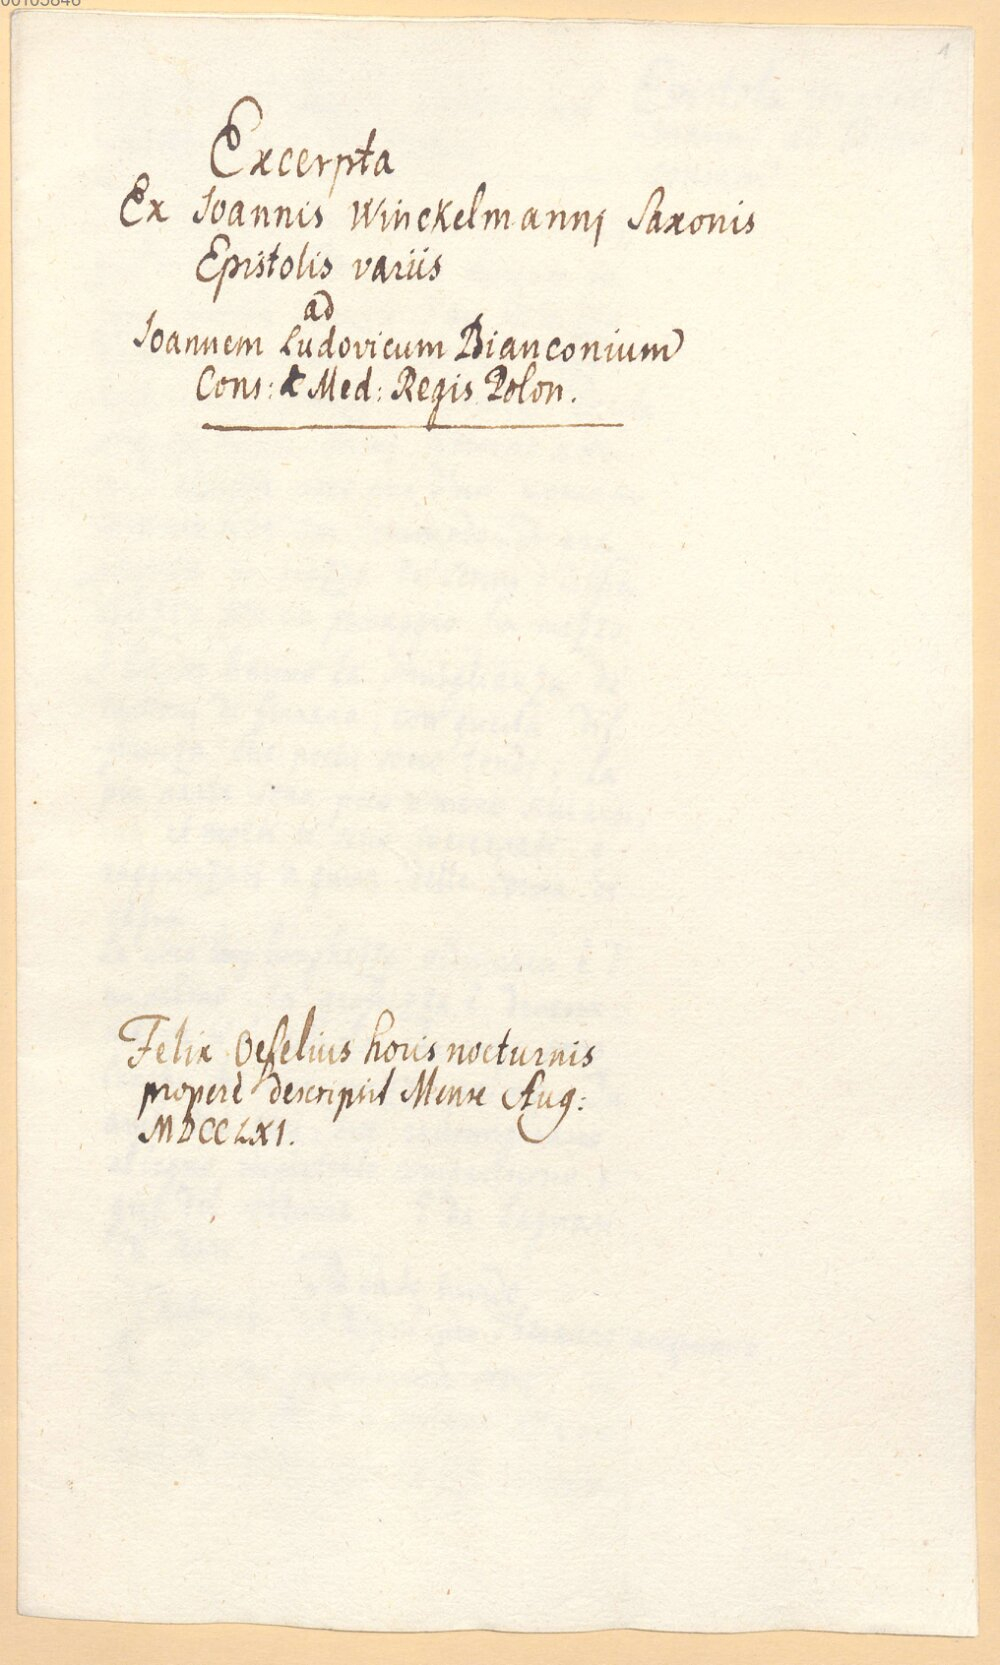 00105846
1
Excerpta
Ex Joannis Winckelmanni Saxonis
Epistolis variis
ad
Joannem Ludovicum Bianconium
Cons: & Med: Regis Polon.
Felix Oefelius horis nocturnis
properè descripsit Mense Aug:
MDCCLXI.